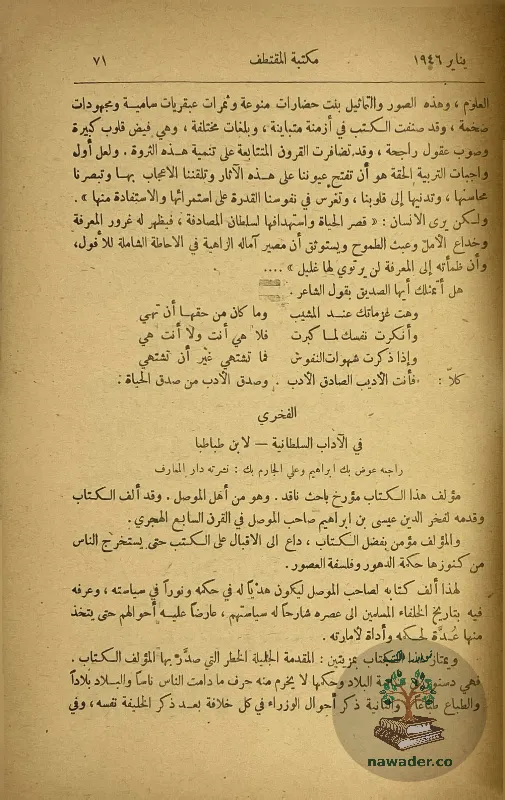 يناير ١٩٤٦
مكتبة المقتطف
٧١
العلوم ، وهذه الصور والتماثيل بنت حضارات منوعة وثمرات عبقريات سامية ومجهودات
ضخمة ، وقد صنفت الكتب في أزمنة متباينة ، وبلغات مختلفة ، وهي فيض قلوب كبيرة
وصوب عقول راجحة ، وقد تضافرت القرون المتتابعة على تنمية هذه الثروة . ولعل أول
واجبات التربية الحقة هو أن تفتح عيوننا على هذه الآثار وتلقننا الاعجاب بها وتبصرنا
محاسنها ، وتدنيها إلى قلوبنا ، وتغرس في نفوسنا القدرة على استمرائها والاستفادة منها » .
ولكن يرى الانسان : « قصر الحياة واستهدافها لسلطان المصادفة ، فيظهر له غرور المعرفة
وخداع الأمل وعبث الطموح ويستوثق أن مصير آماله الزاهية في الاحاطة الشاملة للأفول ،
وأن ظمأته إلى المعرفة لن يرتوي لها غليل » ....
هل أتمثلك أيها الصديق بقول الشاعر .
وهت عزماتك عند المشيب وما كان من حقها أن تهي
وأنكرت نفسك لما كبرت فلا هي أنت ولا أنت هي
وإذا ذكرت شهوات النفوس فما تشتهي غير أن تشتهي
كلاّ : فأنت الأديب الصادق الأدب . وصدق الأدب من صدق الحياة .
الفخري
في الآداب السلطانية — لابن طباطبا
راجعه عوض بك ابراهيم وعلي الجارم بك : نشرته دار المعارف
مؤلف هذا الكتاب مؤرخ باحث ناقد . وهو من أهل الموصل . وقد ألف الكتاب
وقدمه لفخر الدين عيسى بن ابراهيم صاحب الموصل في القرن السابع الهجري .
والمؤلف مؤمن بفضل الكتاب ، داع الى الاقبال على الكتب حتى يستخرج الناس
من كنوزها حكمة الدهور وفلسفة العصور .
لهذا ألف كتابه لصاحب الموصل ليكون هدياً له في حكمه ونوراً في سياسته ، وعرفه
فيه بتاريخ الخلفاء المسلمين الى عصره شارحاً له سياستهم ، عارضاً عليه أحوالهم حتى يتخذ
منها عُدَّة لحكمه وأداة لأمارته .
ويمتاز هذا الكتاب بمزيتين : المقدمة الجليلة الخطر التي صدَّر بها المؤلف الكتاب .
فهي دستور البلاد وحكمها لا يخرم منه حرف ما دامت الناس ناساً والبلاد بلاداً
والطباع طباعاً والثانية ذكر أحوال الوزراء في كل خلافة بعد ذكر الخليفة نفسه ، وفي
nawader.co